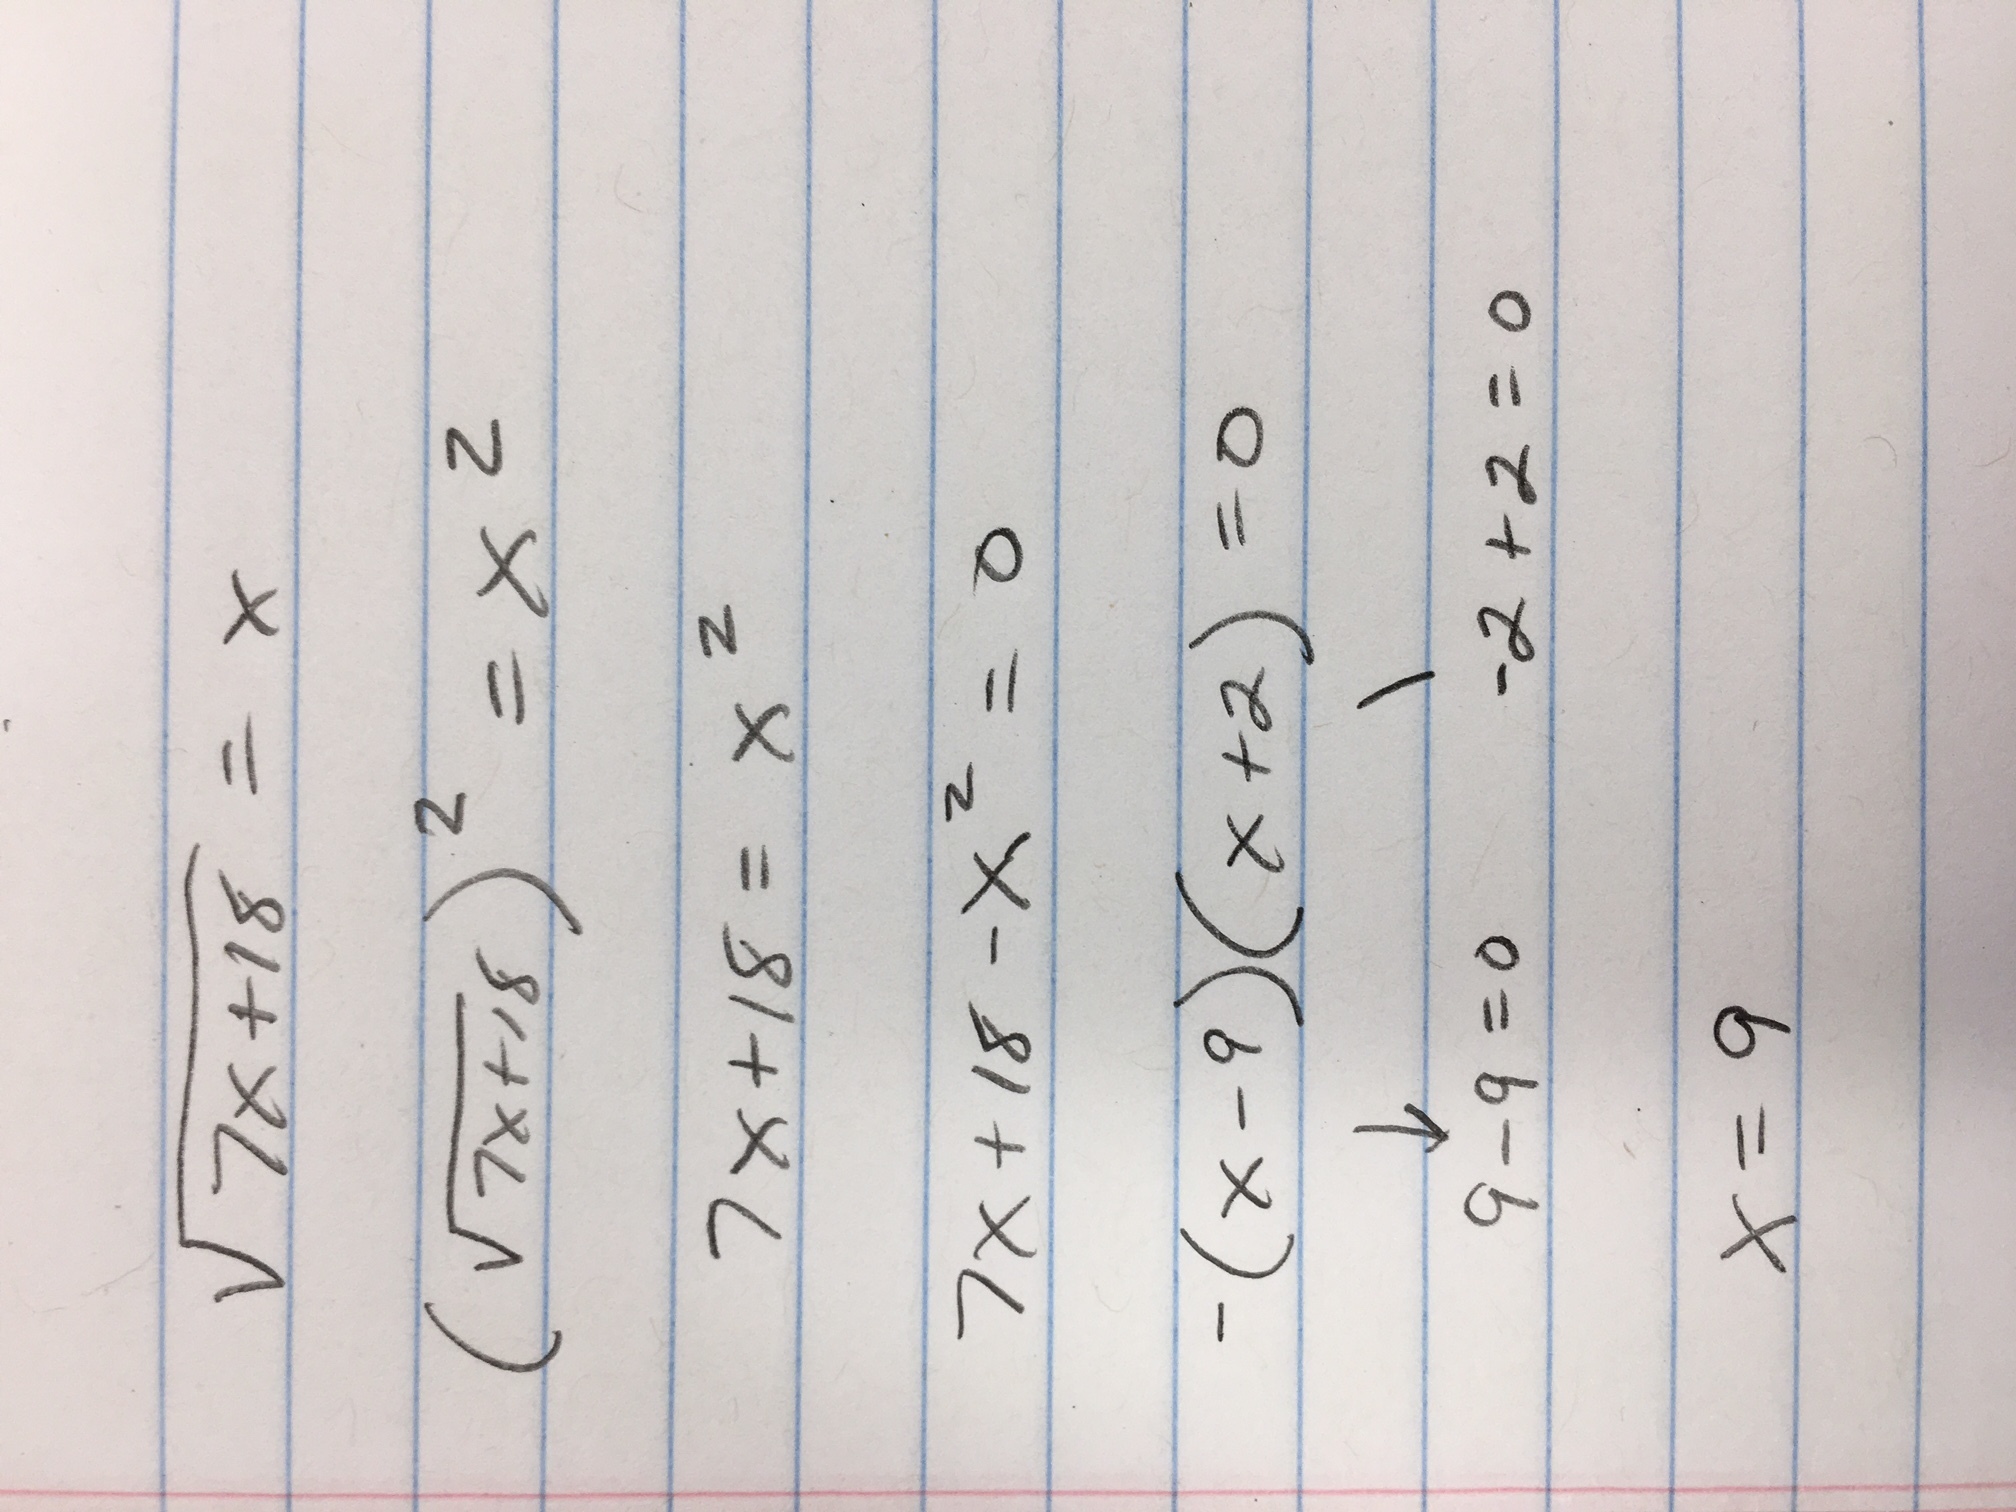 √(7x+18) = x
(√(7x+18))² = x²
7x+18 = x²
7x+18-x² = 0
-(x-9)(x+2) = 0
↓ \
9-9=0 -2+2=0
x=9